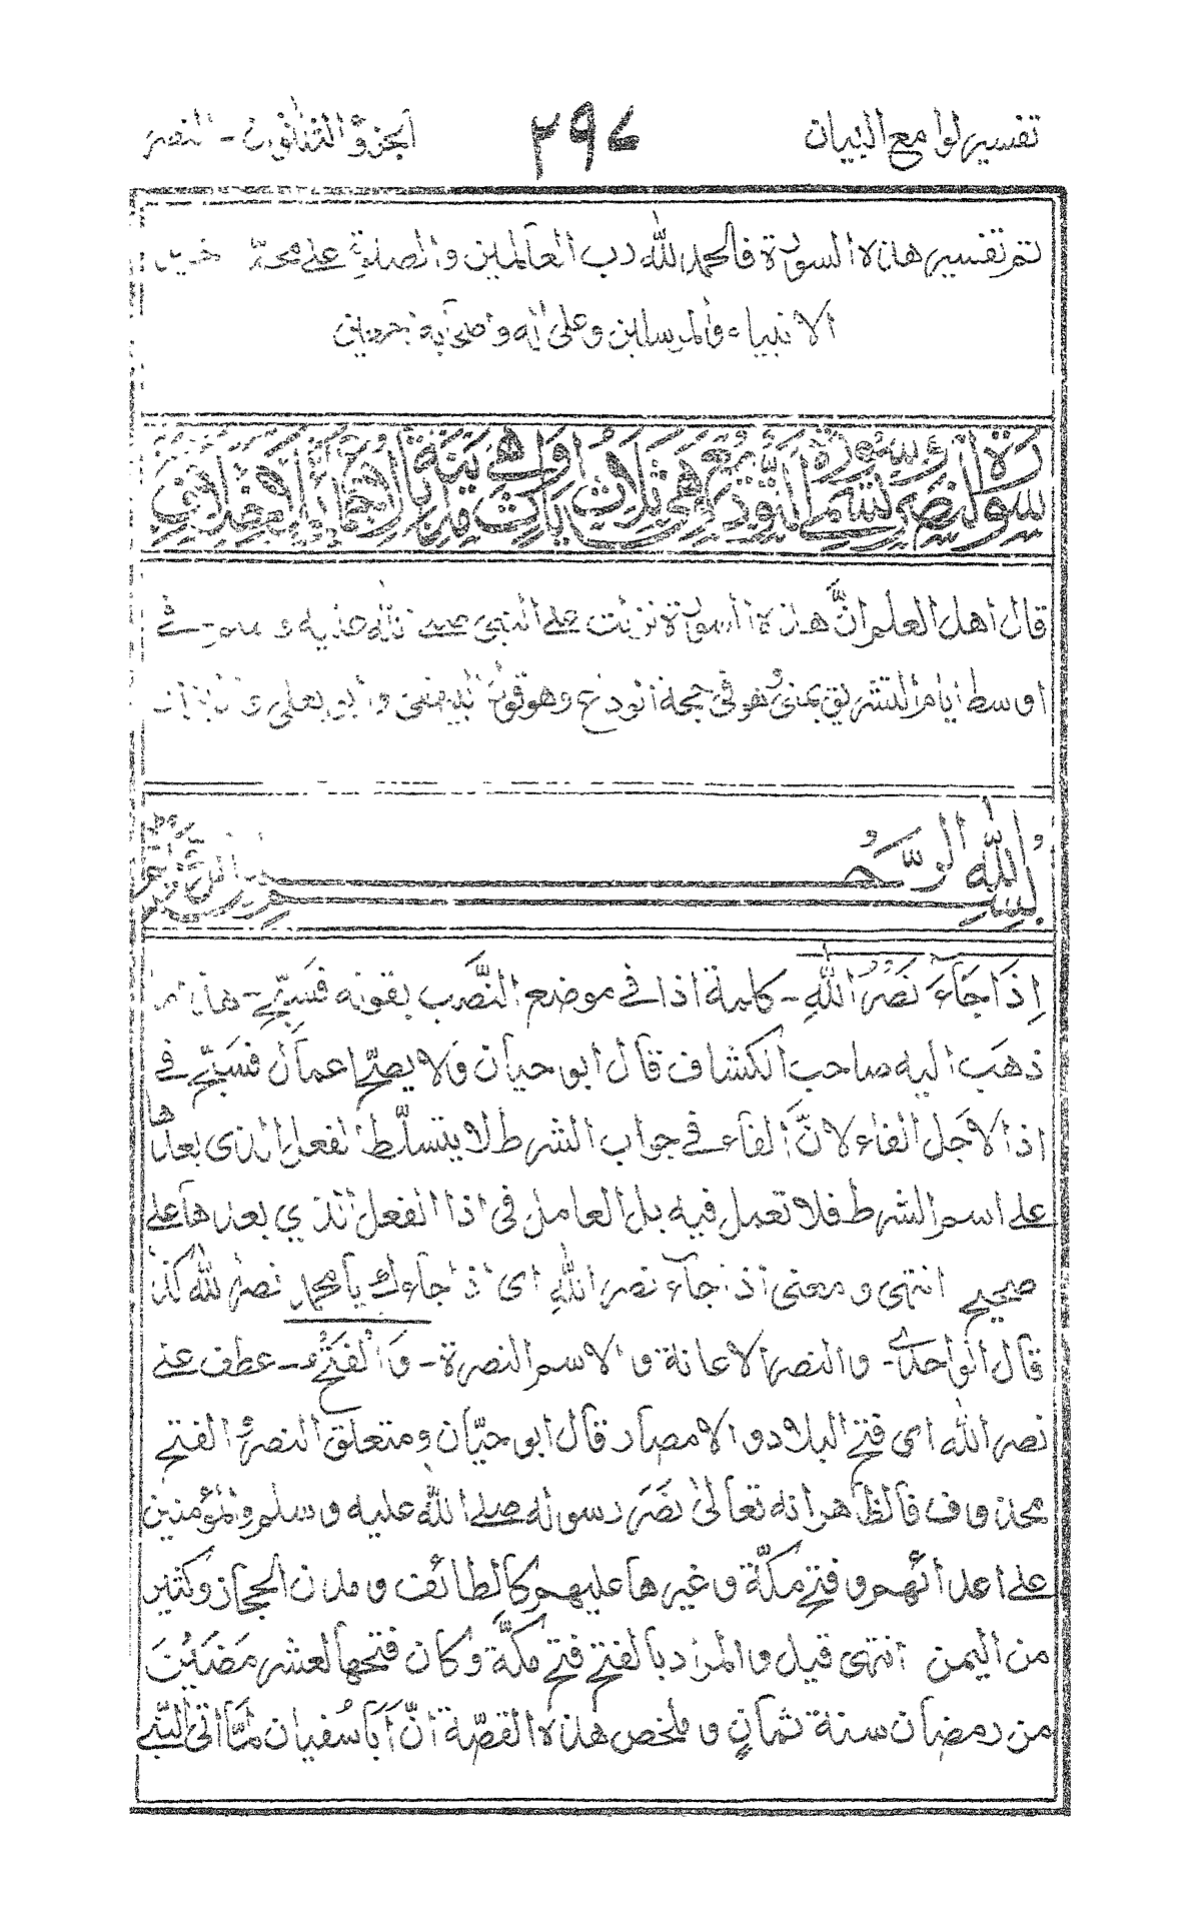 تفسير لوامع البيان ٢٩٦ الجزؤ الثلاثون - النصر
تم تفسير هذه السورة فالحمد لله رب العالمين والصلوة على محمد خير
الانبياء والمرسلين وعلى اله وصحابه اجمعين
سورة النصر وتسمى سورة التوديع وهى ثلاث ايات وهى مدنية بالاجماع
قال اهل العلم انَّ هذه السورة نزلت على النبي صلى الله عليه وسلم في
اوسط ايام التشريق بمنى وهو في حجة الوداع وهو قول البيهقى وابو يعلى و
بسم الله الرحمن الرحيم
اِذَا جَآءَ نَصْرُ اللهِ - كلمة اذا في موضع النَّصْب بقوله فَسَبِّحْ - هذا ما
ذهَب اليه صاحب الكشاف قال ابو حيان وَلا يصحّ اعمال فَسَبِّحْ في
اذا لاجَل الفاء لانّ الفآء في جواب الشرط لا يتسلَّط الفعل الذى بعدها
على اسم الشرط فلا تعمل فيه بل العامل في اذا الفعل الذي بعدها على
صحيح انتهى ومعنى اذا جآء نصر اللهِ اى اذا جآءك يا محمد نصر لله كذا
قال الواحدى - والنصر الاعانة والاسم النصرة - وَالْفَتْحُ - عطف على
نصر الله اى فتح البلاد و الامصار قال ابو حيّان ومتعلق النصر و الفتح
محذوف فالظاهر انه تعالىٰ نَصَرَ رسوله صلى الله عليه وسلم والمؤمنين
على اعدائهم وفتح مكّة وغيرها عليهم كالطائف ومدن الحجاز وكثير
من اليمن انتهى قيل والمراد بالفتح فتح مكَّة وكان فتحها لعشر مَضَيْنَ
من رمضان سنة ثمانٍ وملخص هذه القصّة انّ اَبَا سُفيان لمَّا اتى النّبى